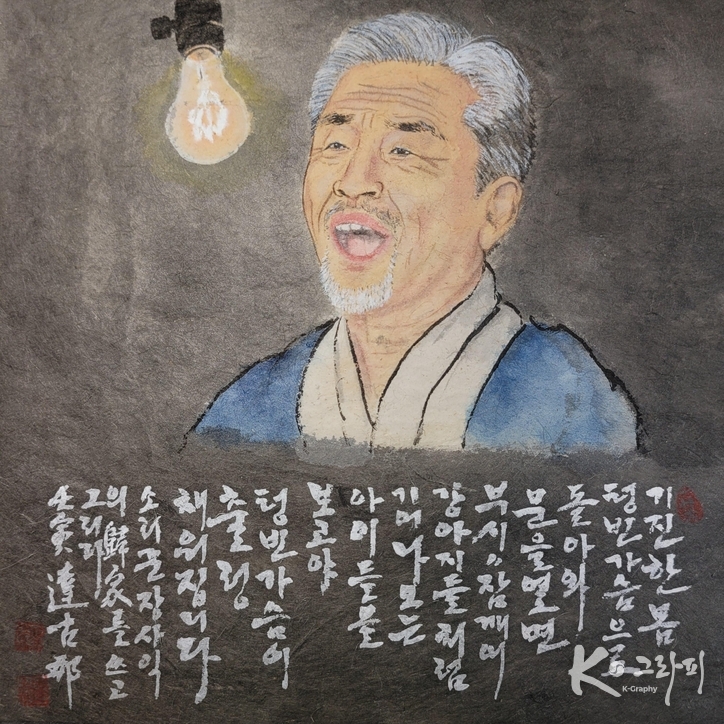 기진한 몸
텅빈가슴으로
돌아와
문을열면
부시시잠깨어
강아지들처럼
기어나오는
아이들을
보고야
텅빈가슴이
출렁
채워집니다
소리꾼장사익
의 歸家를 쓰고
그리다
壬寅 達古
K그라피
K-Graphy